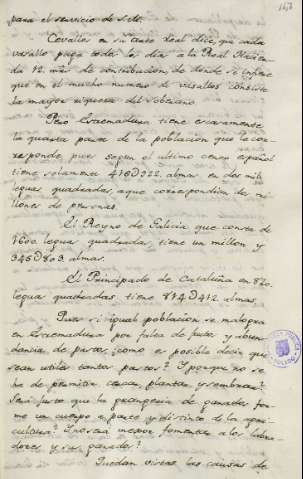 para el servicio de
Cevallos en su tanto Real dice, que cada
vasallo paga todo los dia a la Real Hacien
da 12 mrs. de contribucion, de donde se infiere
que en el mucho numero de vasallos consiste
la mayor riqueza del Soberano.
Pero Extremadura tiene escasamente
la quarta parte de la poblacion que la co-
rresponde pues segun el ultimo censo español
tiene solamente 416922 almas en dos mil
leguas quadradas, a que corresponden de mi-
llones de personas.
El Reyno de Galicia que consta de
1600 leguas quadradas, tiene un millon y
345803 almas.
El Principado de Cataluña en 820
leguas quadradas, tiene 814412 almas.
Pues si igual poblacion se malogra
en Extremadura por falta de frutos y abun-
dancia de pastos, ¿como es posible decir que
sean utiles tantos pastos? ¿Y porque no se
ha de permitir cercar, plantar, y sembrar?
¿Sera justo que la grangeria de ganados for-
me un cuerpo a parte y distinto de la agri-
cultura? ¿No sera mejor fomentar a los labra-
dores y sus ganados?
Quedan vistas las causas de